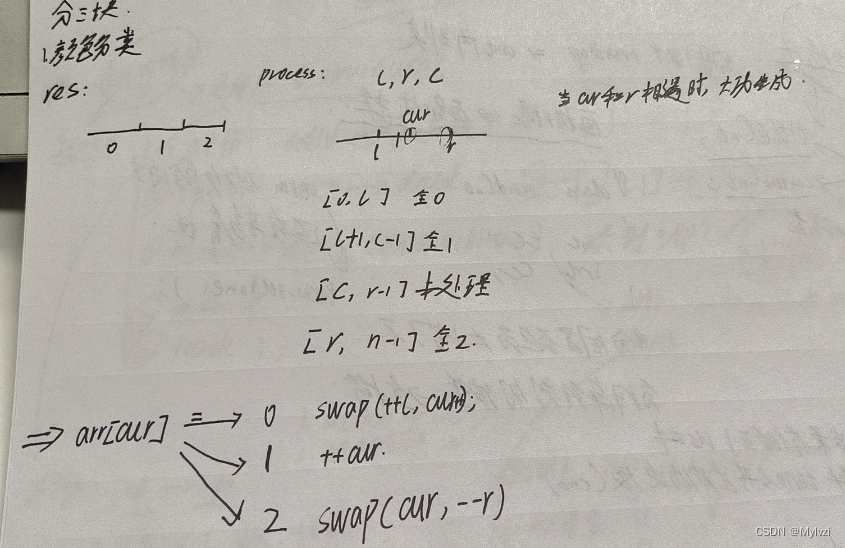 分三块.
1.颜色分类
res:
process: l, r, c
当cur和r相遇时,大功告成.
cur
0 1 2
l r
[0, l] 全0
[l+1, c-1] 全1
[c, r-1] 未处理
[r, n-1] 全2.
⇒ arr[cur] = → 0 swap(++l, cur++);
→ 1 ++cur.
→ 2 swap(cur, --r)
CSDN @Mylvzi